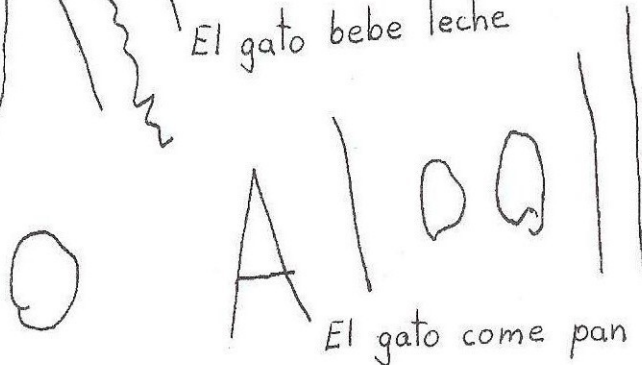 El gato bebe leche
O A l o o l l
El gato come pan